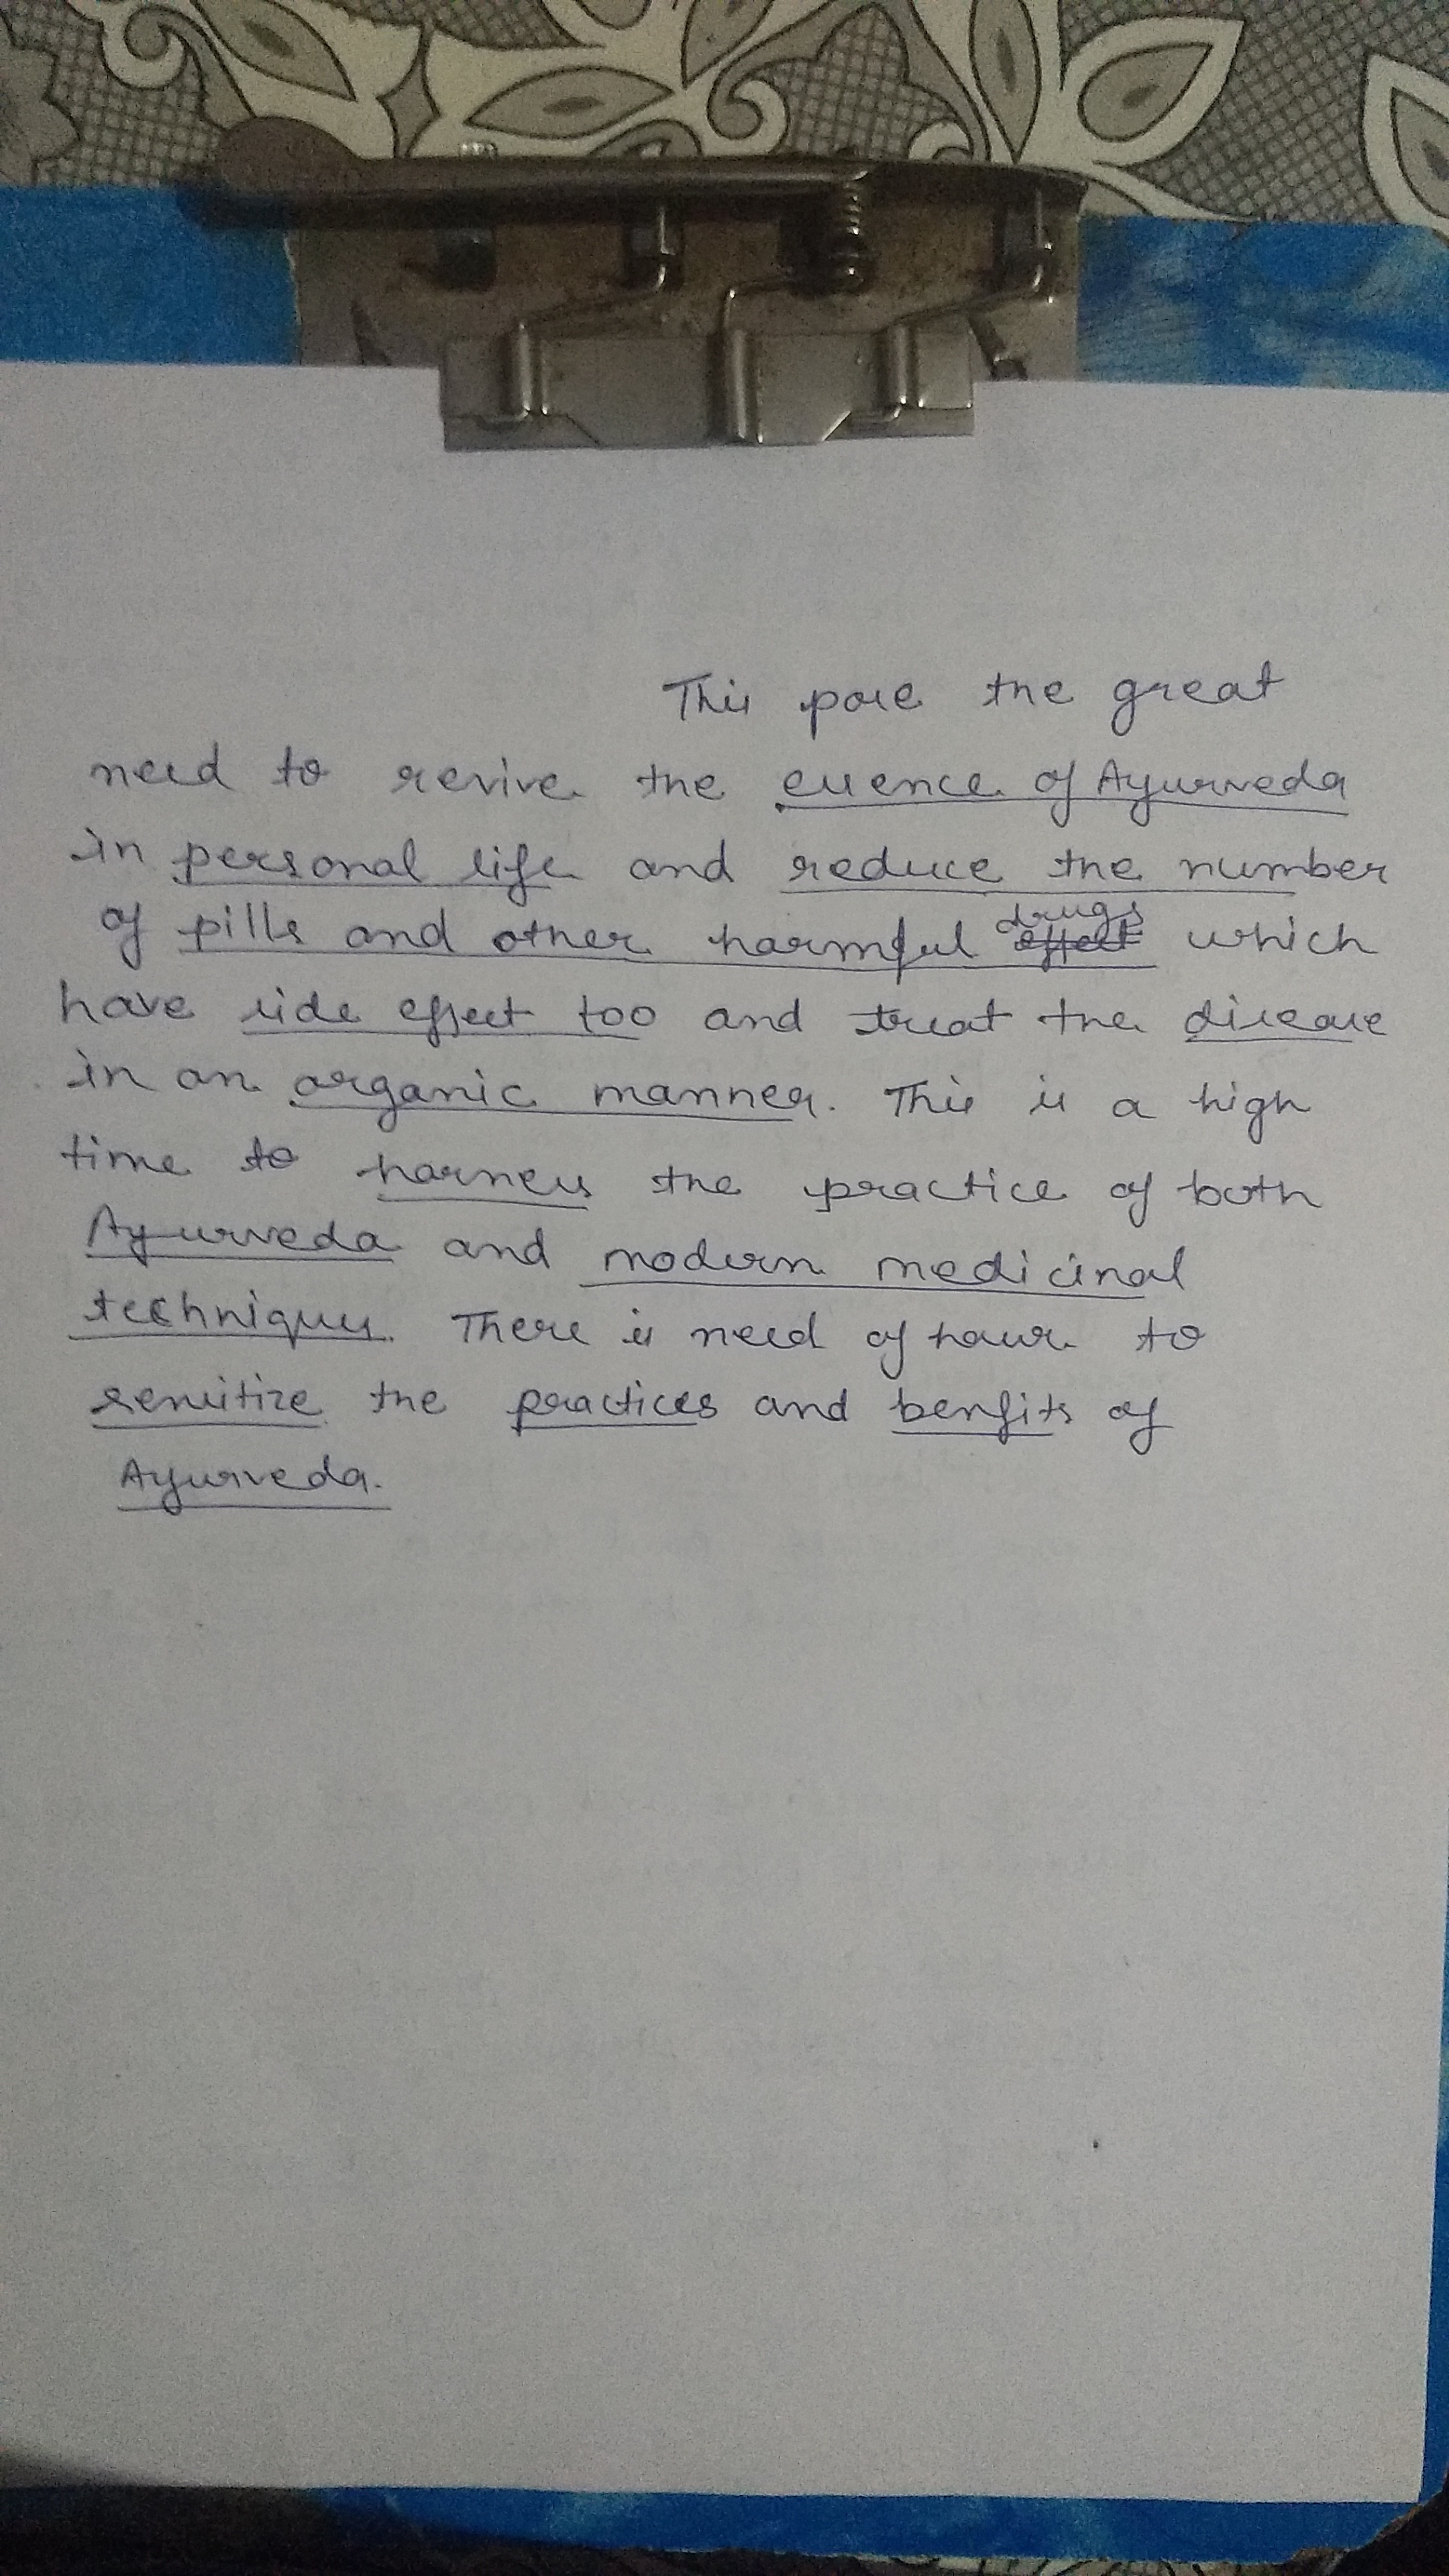 This pose the great
need to revive the essence of Ayurveda
in personal life and reduce the number
of pills and other harmful drugs which
have side effect too and treat the disease
in an organic manner. This is a high
time to harness the practice of both
Ayurveda and modern medicinal
techniques. There is need of hour to
sensitize the practices and benfits of
Ayurveda.